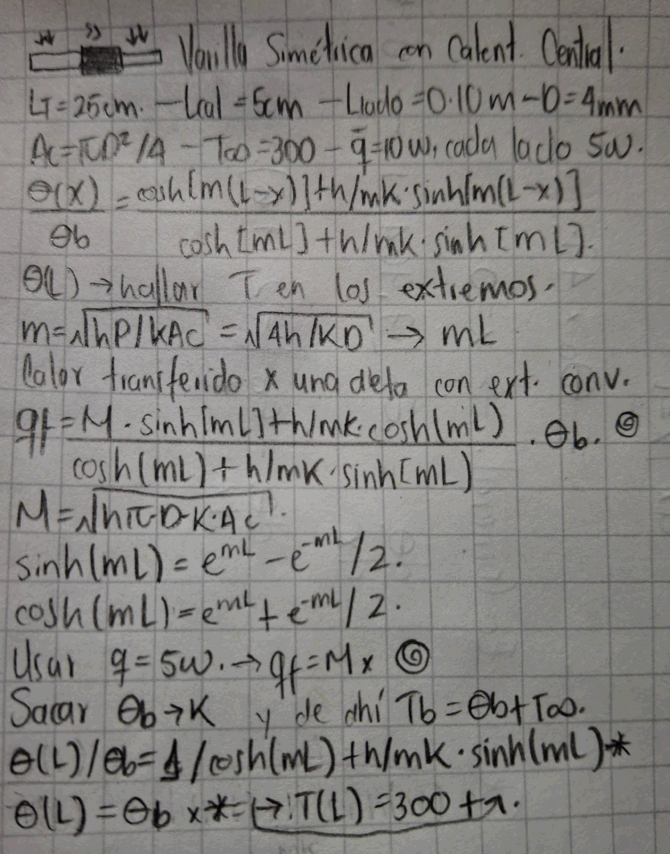 Varilla Simétrica con Calent. Central.
LT=25cm. - Lcal=5cm - Llado=0.10m - D=4mm
Ac=πD²/4 - T∞=300 - q=10w, cada lado 5w.
θ(x)/θb = cosh[m(L-x)]+h/mk·sinh[m(L-x)] / cosh[mL]+h/mk·sinh[mL].
θ(L)→hallar T en los extremos.
m=√hP/kAc = √4h/KD → mL
Calor transferido x una aleta con ext. conv.
qf=M·sinh[mL]+h/mk·cosh(mL) / cosh(mL)+h/mk·sinh[mL] · θb.
M=√hπ·D·K·Ac.
sinh(mL)=e^mL - e^-mL/2.
cosh(mL)=e^mL+e^-mL/2.
Usar q=5w.→qf=Mx
Sacar θb→K y de ahí Tb=θb+T∞.
θ(L)/θb=1/cosh(mL)+h/mk·sinh(mL)*
θ(L)=θb x*=(→:T(L)=300+